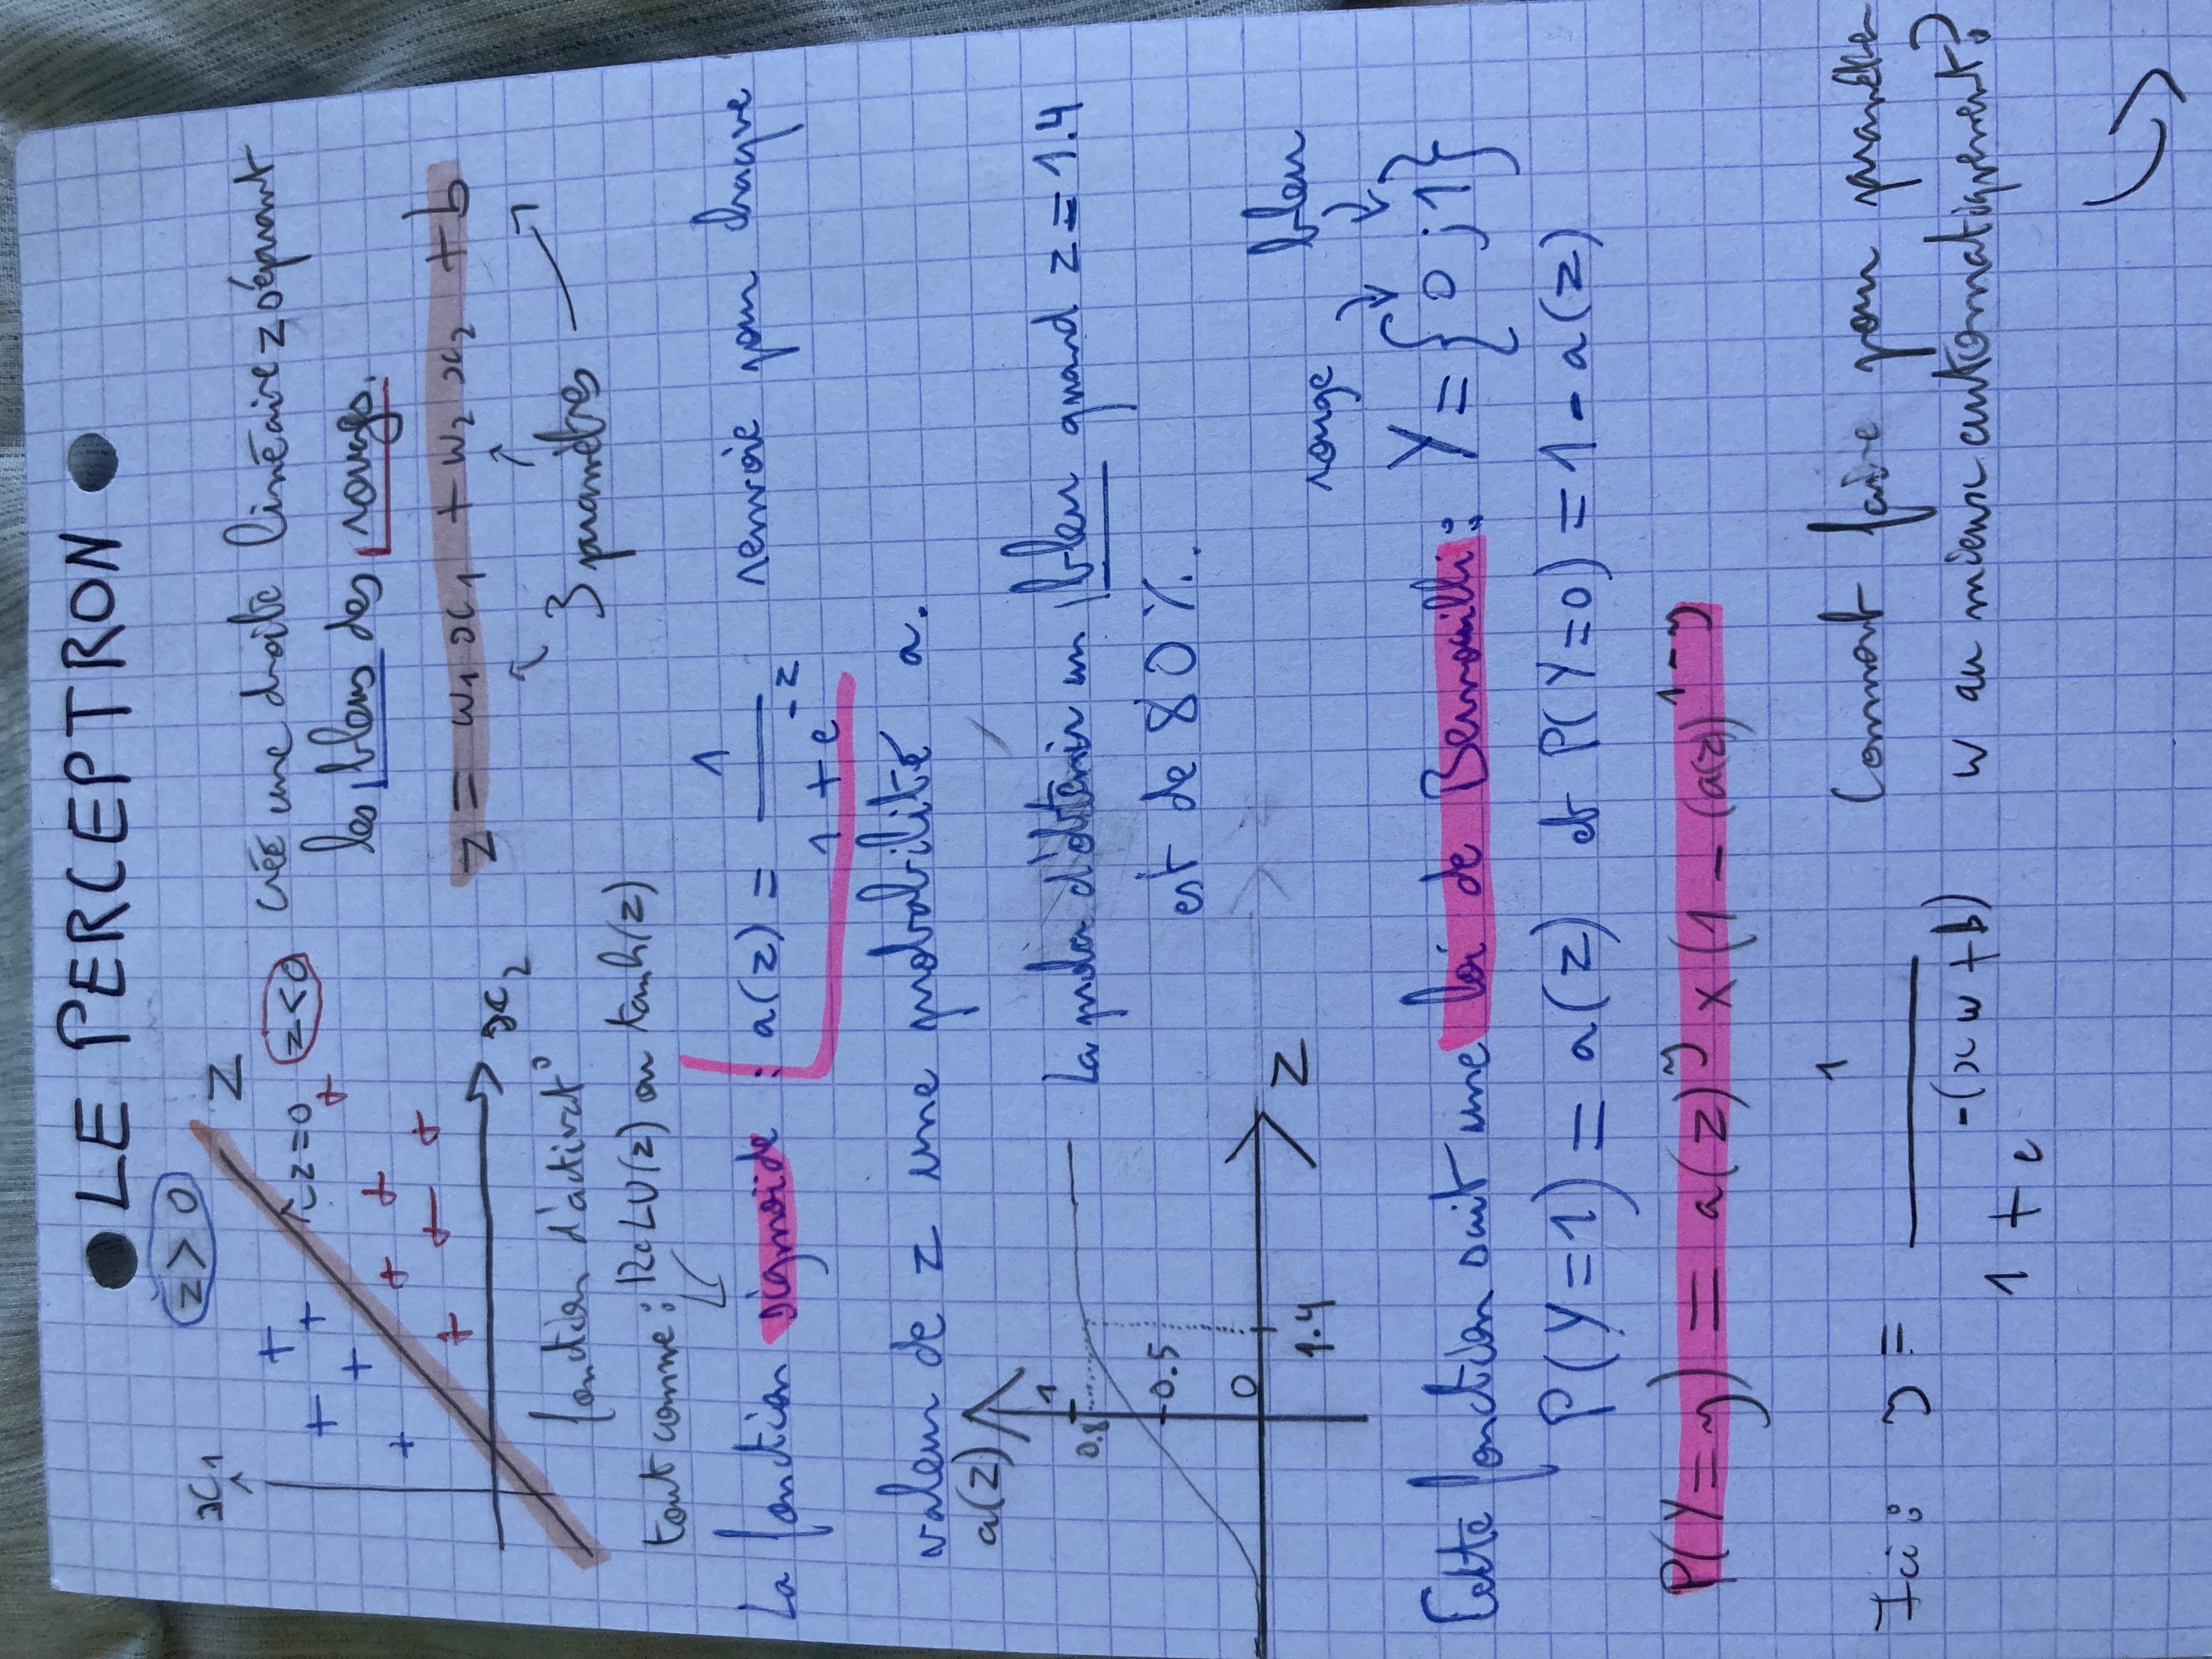 LE PERCEPTRON
z > 0
x1
z
z=0
z<0
x2
crée une droite linéaire z séparant
les bleus des rouges.
z = w1 x1 + w2 x2 + b
3 paramètres
fonction d'activat°
tout comme : ReLU(z) ou tanh(z)
La fonction sigmoïde : a(z) = 1 / (1 + e^-z) renvoie pour chaque
valeur de z une probabilité a.
a(z)
1
0.8
0.5
0
1.4
z
La proba d'obtenir un bleu quand z = 1.4
est de 80 %.
rouge bleu
Cette fonction suit une loi de Bernouilli : Y = {0 ; 1}
P(Y=1) = a(z) et P(Y=0) = 1 - a(z)
P(Y=y) = a(z)^y x (1 - (a(z))^1-y
Ici : y = 1 / (1 + e^-(xw + b))
Comment faire pour
w au mieux automatiquement ?